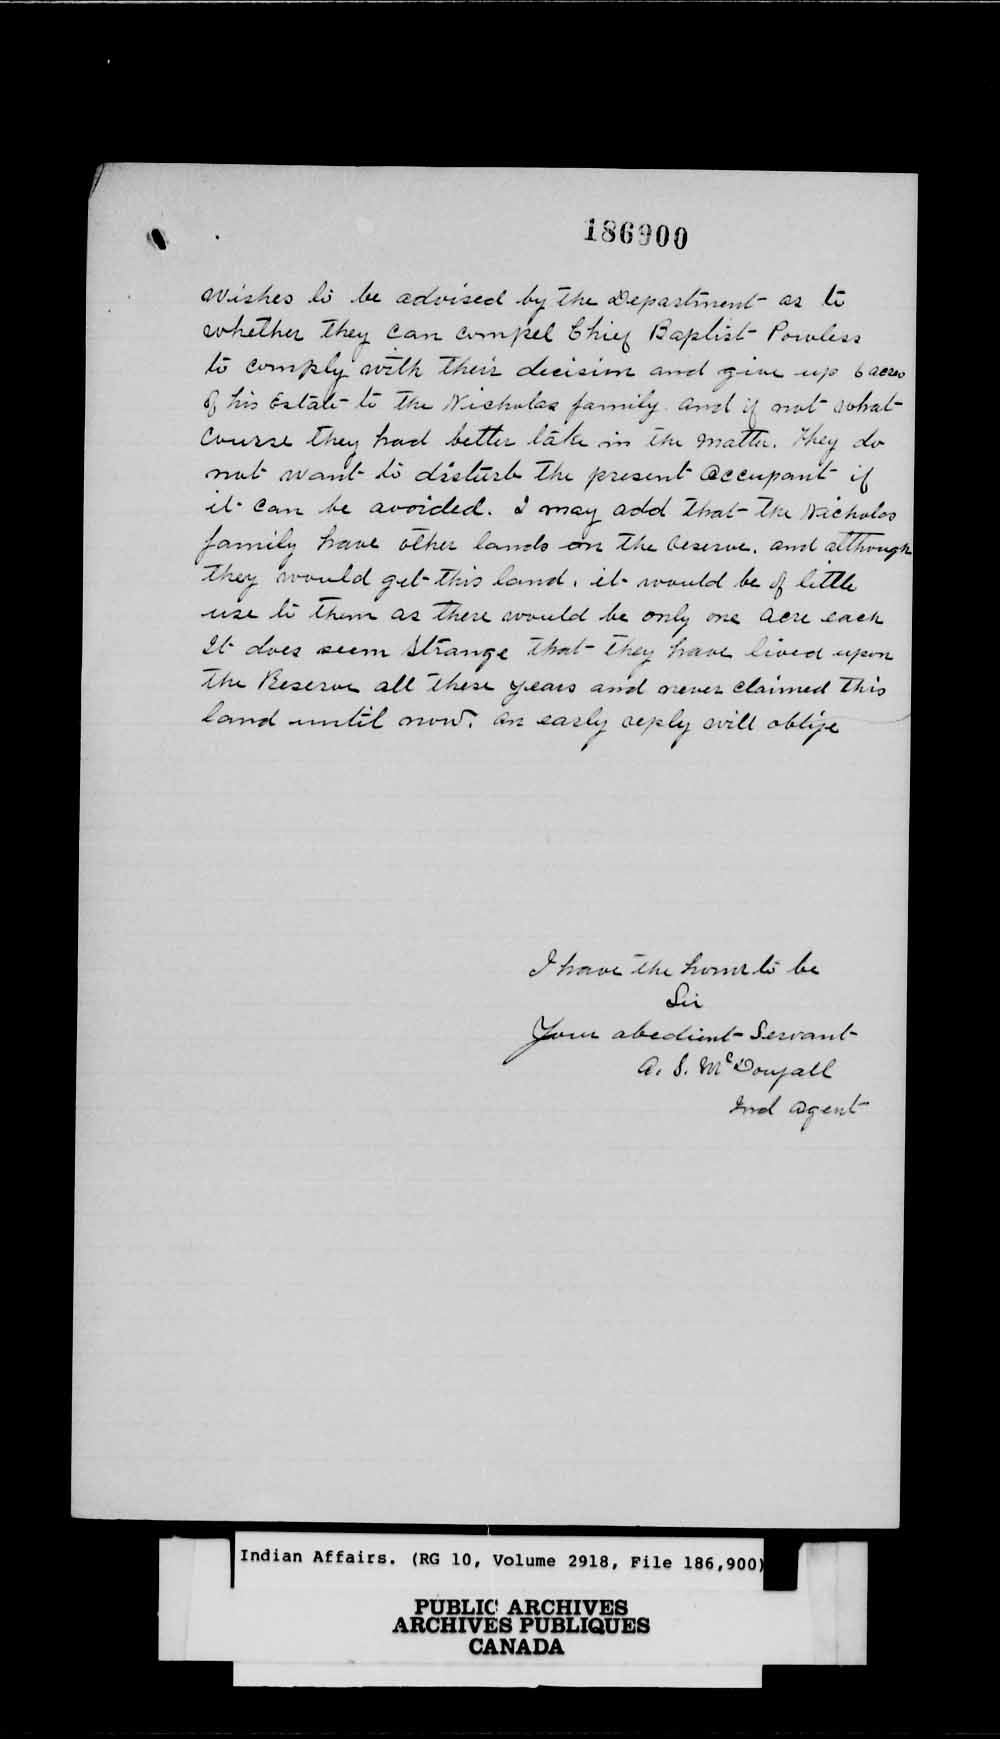 186900
wishes to be advised by the Department as to
whether they can compel Chief Baptist Powless
to comply with their decision and give up 6 acres
of his Estate to the Nicholas family. and if not what
course they had better take in the matter. They do
not want to disturb the present occupant if
it can be avoided. I may add that the Nicholas
family have other lands on the Reserve. and although
they would get this land, it would be of little
use to them as there would be only one acre each
It does seem strange that they have lived upon
the Reserve all these years and never claimed this
land until now. An early reply will oblige
I have the honor to be
Sir
Your obedient Servant
A. S. McDougall
Ind Agent
Indian Affairs. (RG 10, Volume 2918, File 186,900)
PUBLIC ARCHIVES
ARCHIVES PUBLIQUES
CANADA